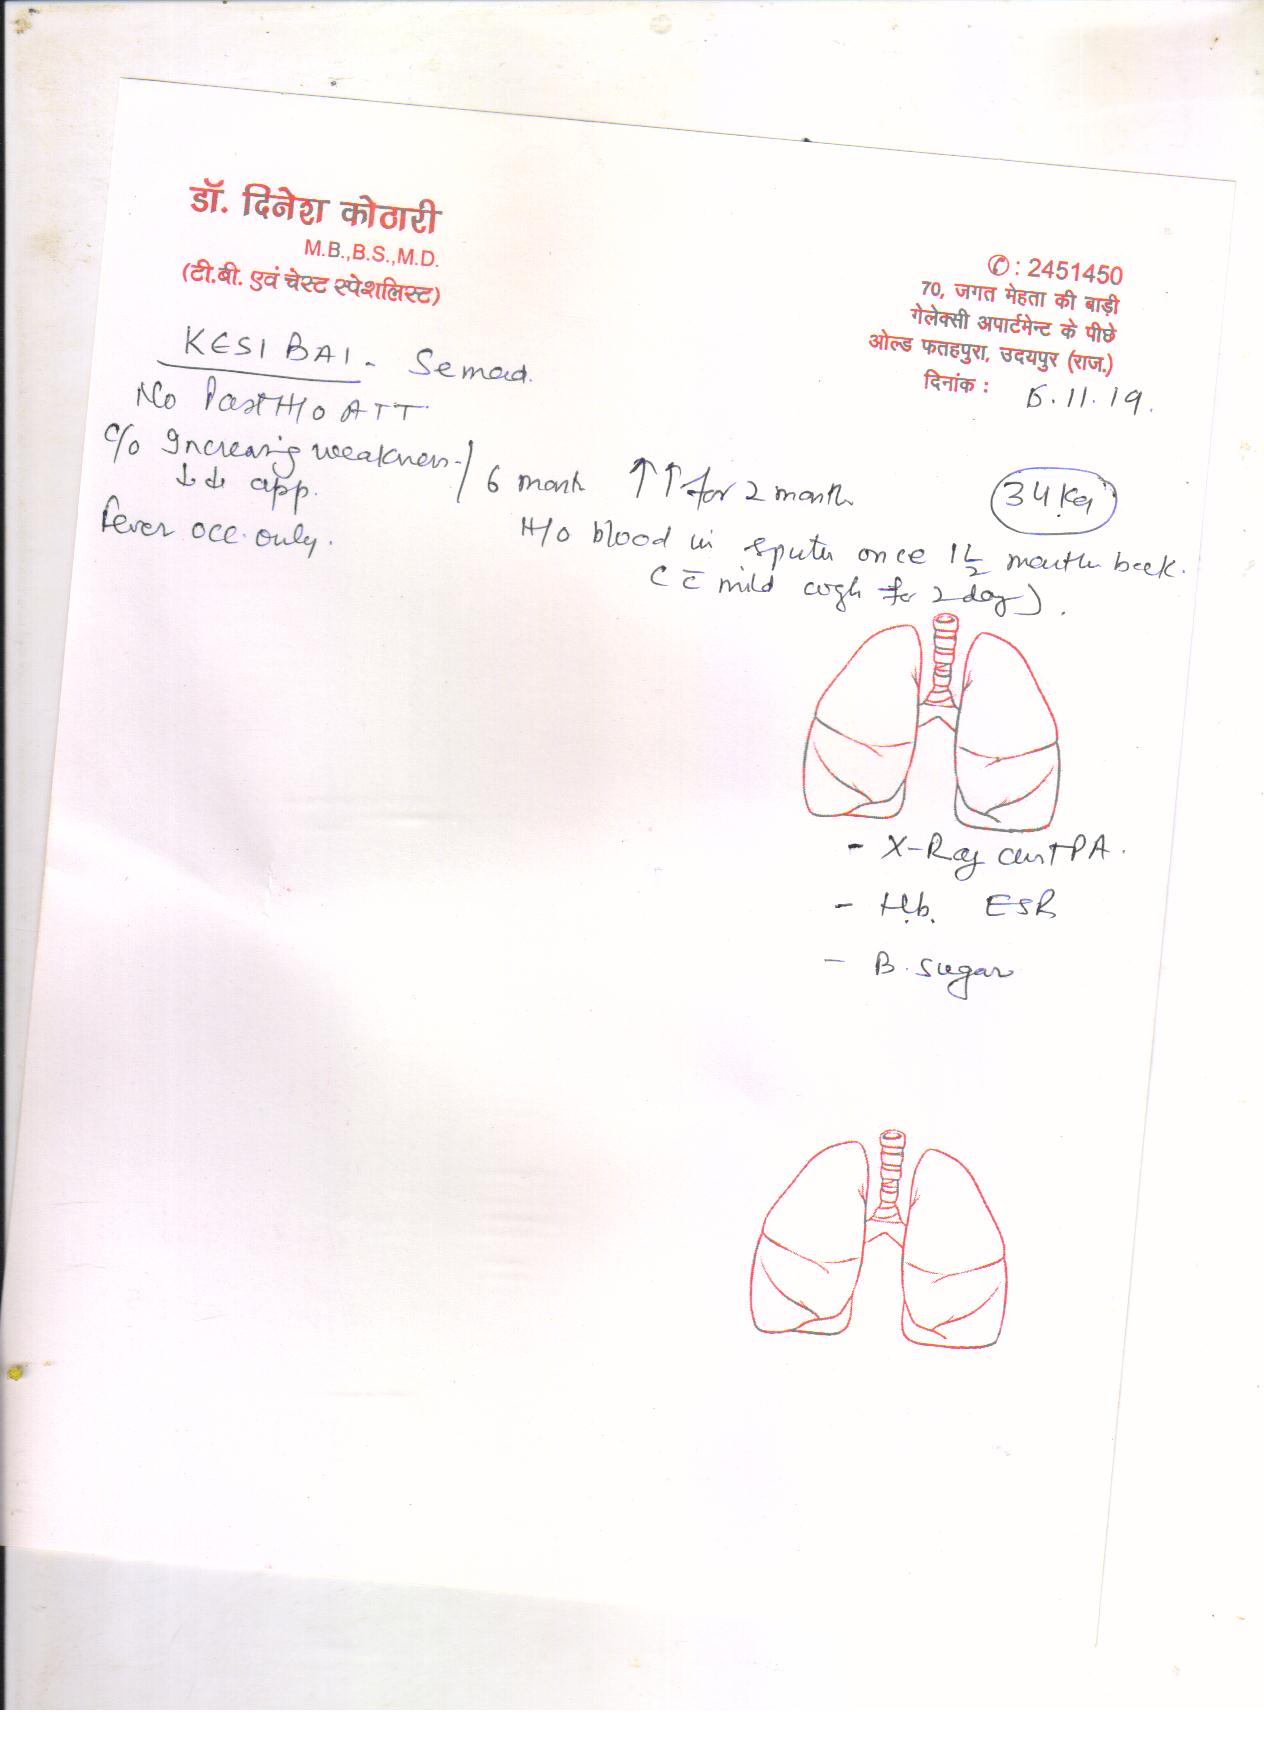 डॉ. दिनेश कोठारी
M.B.,B.S.,M.D.
(टी.बी. एवं चेस्ट स्पेशलिस्ट)
✆ : 2451450
70, जगत मेहता की बाड़ी
गेलेक्सी अपार्टमेन्ट के पीछे
ओल्ड फतहपुरा, उदयपुर (राज.)
दिनांक : 5.11.19.
KESI BAI - Semad.
No Past H/o ATT.
c/o Increasing weakness / 6 month ↑↑ for 2 month
↓↓ app.
34 Kg
fever occ. only.
H/o blood in sputum once 1 1/2 month back.
(c̄ mild cough for 2 day).
- X-Ray chest PA.
- Hb. ESR
- B. sugar